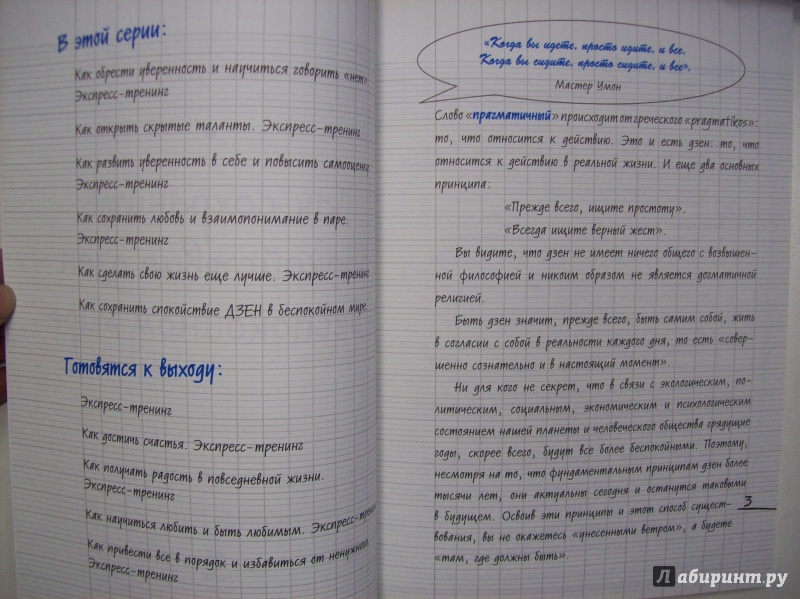 В этой серии:
Как обрести уверенность и научиться говорить «нет»
Экспресс-тренинг
Как открыть скрытые таланты. Экспресс-тренинг
Как развить уверенность в себе и повысить самооценку
Экспресс-тренинг
Как сохранить любовь и взаимопонимание в паре.
Экспресс-тренинг
Как сделать свою жизнь еще лучше. Экспресс-тренинг
Как сохранить спокойствие ДЗЕН в беспокойном мире.
Готовятся к выходу:
Экспресс-тренинг
Как достичь счастья. Экспресс-тренинг
Как получать радость в повседневной жизни.
Экспресс-тренинг
Как научиться любить и быть любимым. Экспресс-трени
Как привести все в порядок и избавиться от ненужного.
Экспресс-тренинг
«Когда вы идете, просто идите, и все.
Когда вы сидите, просто сидите, и все».
Мастер Умон
Слово «прагматичный» происходит от греческого «pragmatikos»:
то, что относится к действию. Это и есть дзен: то, что
относится к действию в реальной жизни. И еще два основных
принципа:
«Прежде всего, ищите простоту».
«Всегда ищите верный жест».
Вы видите, что дзен не имеет ничего общего с возвышен-
ной философией и никоим образом не является догматичной
религией.
Быть дзен значит, прежде всего, быть самим собой, жить
в согласии с собой в реальности каждого дня, то есть «совер-
шенно сознательно и в настоящий момент».
Ни для кого не секрет, что в связи с экологическим, по-
литическим, социальным, экономическим и психологическим
состоянием нашей планеты и человеческого общества грядущие
годы, скорее всего, будут все более беспокойными. Поэтому,
несмотря на то, что фундаментальным принципам дзен более
тысячи лет, они актуальны сегодня и останутся таковыми
в будущем. Освоив эти принципы и этот способ сущест-
вования, вы не окажетесь «унесенными ветром», а будете
«там, где должны быть».
3
Лабиринт.ру